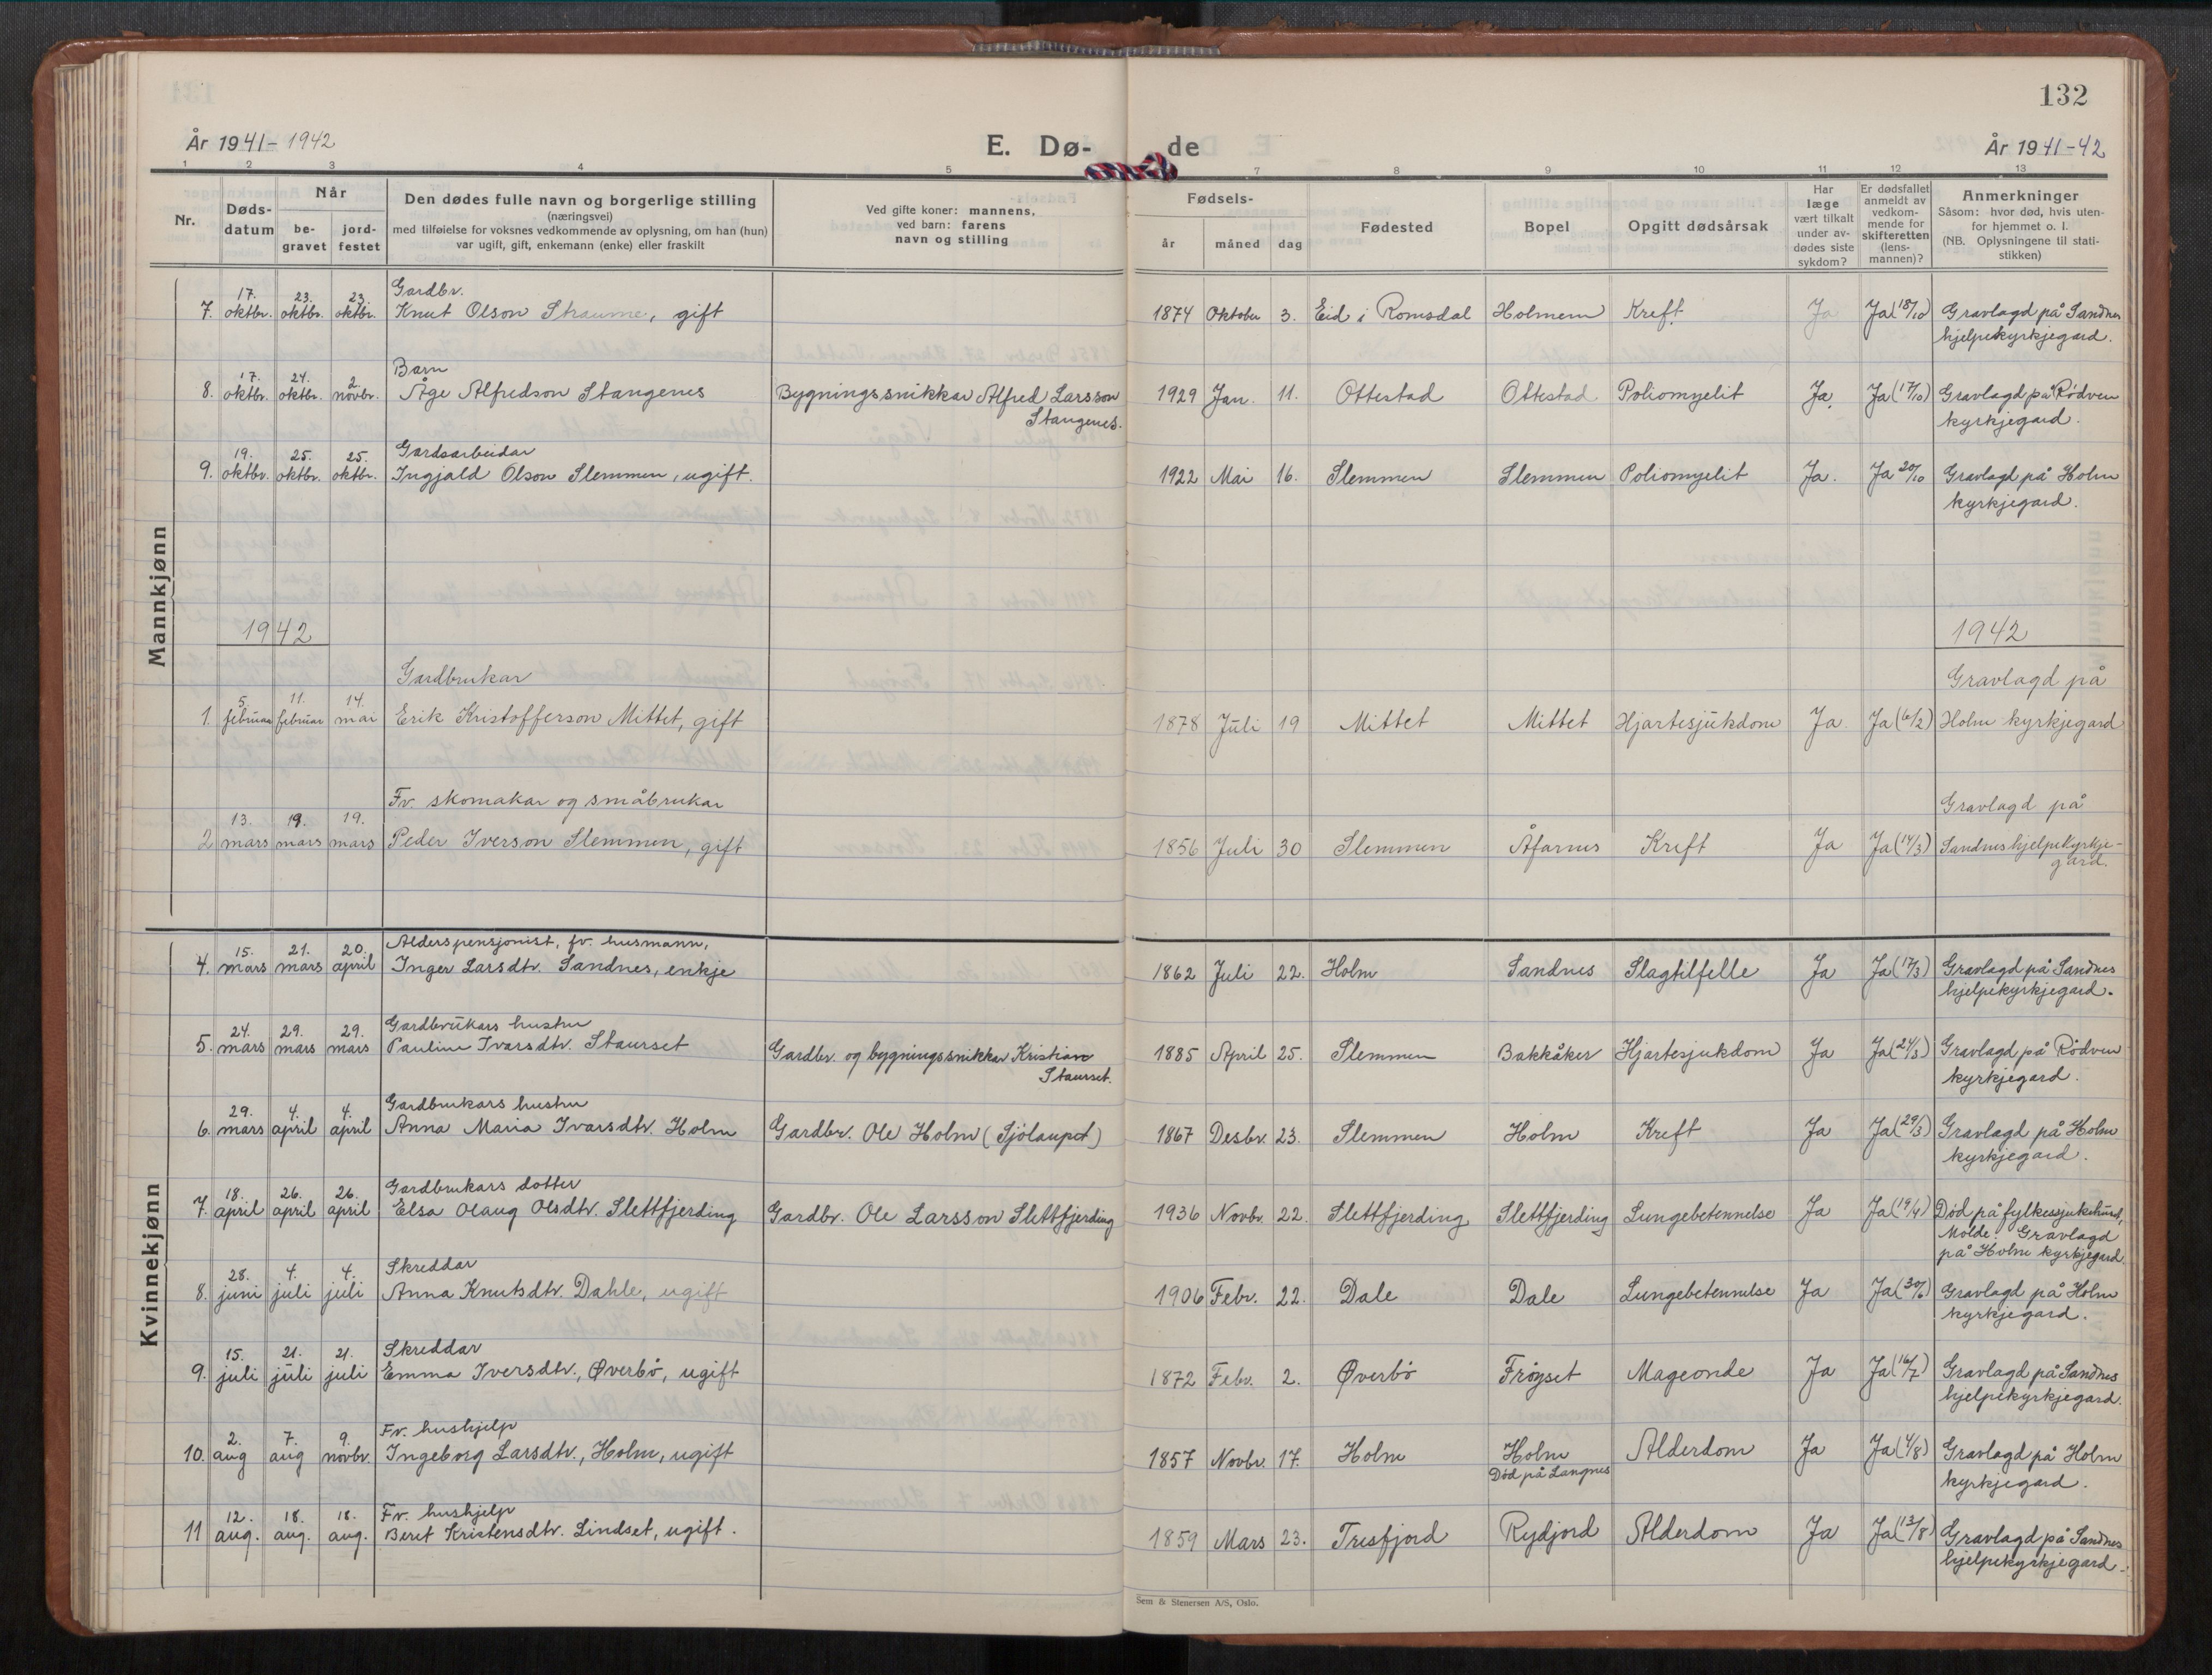 132
År 1941-1942
E. Døde
År 1941-42
1 2 3 4 5 7 8 9 10 11 12 13
Nr.
Døds-
datum
Når
be-
gravet
jord-
festet
Den dødes fulle navn og borgerlige stilling
(næringsvei)
med tilføielse for voksnes vedkommende av oplysning, om han (hun)
var ugift, gift, enkemann (enke) eller fraskilt
Ved gifte koner: mannens,
ved barn: farens
navn og stilling
Fødsels-
år
måned
dag
Fødested
Bopel
Opgitt dødsårsak
Har
læge
vært tilkalt
under av-
dødes siste
sykdom?
Er dødsfallet
anmeldt av
vedkom-
mende for
skifteretten
(lens-
mannen)?
Anmerkninger
Såsom: hvor død, hvis uten-
for hjemmet o. l.
(NB. Oplysningene til stati-
stikken)
Mannkjønn
17. 23. 23. Gardbr.
7. oktbr. oktbr. oktbr. Knut Olson Straume, gift 1874 Oktober 3. Eid i Romsdal Holmem Kreft Ja Ja (18/10) Gravlagd på Sandnes
hjelpekyrkjegard.
17. 24. 2. Barn
8. oktbr. oktbr. novbr. Åge Alfredson Stangenes Bygningssnikkar Alfred Larsson 1929 Jan. 11. Ottestad Ottestad Poliomyelit Ja. Ja (17/10) Gravlagd på Rödven
Stangenes. kyrkjegard.
19. 25. 25. Gardsarbeidar
9. oktbr. oktbr. oktbr. Ingjald Olson Slemmen, ugift. 1922 Mai 16. Slemmen Slemmen Poliomyelit Ja. Ja 20/10 Gravlagd på Holm
kyrkjegard.
1942 1942
5. 11. 14. Gardbrukar Gravlagd på
1. februar februar mai Erik Kristofferson Mittet, gift 1878 Juli 19 Mittet Mittet Hjartesjukdom Ja Ja (6/2) Holm kyrkjegard
Fv. skomakar og småbrukar Gravlagd på
13. 19. 19.
2 mars mars mars Peder Iverson Slemmen, gift 1856 Juli 30 Slemmen Åfarnes Kreft Ja Ja (14/3) Sandnes hjelpekyrkje-
gard.
Kvinnekjønn
15. 21. 20. Alderspensjonist, fv. husmann,
4. mars mars april Inger Larsdtr. Sandnes, enkje 1862 Juli 22. Holm Sandnes Slagtilfelle Ja Ja (17/3) Gravlagd på Sandnes
hjelpekyrkjegard.
24. 29. 29. Gardbrukars hustru
5. mars mars mars Pauline Ivarsdtr. Staurset Gardbr. og bygningssnikkar Kristian 1885 April 25. Slemmen Bakkåker Hjartesjukdom Ja Ja (24/3) Gravlagd på Rödven
Staurset. kyrkjegard.
29. 4. 4. Gardbrukars hustru
6. mars april april Anna Maria Ivarsdtr. Holm Gardbr. Ole Holm (Sjölaupet) 1867 Desbr. 23. Slemmen Holm Kreft Ja Ja (29/3) Gravlagd på Holm
kyrkjegard.
18. 26. 26. Gardbrukars dotter
7. april april april Elsa Olaug Olsdtr. Slettfjerding Gardbr. Ole Larsson Slettfjerding 1936 Novbr. 22. Slettfjerding Slettfjerding Lungebetennelse Ja Ja (19/4) Död på fylkessjukehuset,
Molde. Gravlagd
på Holm kyrkjegard.
28. 4. 4. Skreddar
8. juni juli juli Anna Knutsdtr. Dahle, ugift 1906 Febr. 22. Dale Dale Lungebetennelse Ja Ja (30/6) Gravlagd på Holm
kyrkjegard.
15. 21. 21. Skreddar
9. juli juli juli Emma Iversdtr., Øverbö, ugift 1872 Febr. 2. Øverbö Fröyset Mageonde Ja Ja (16/7) Gravlagd på Sandnes
hjelpekyrkjegard.
2. 7. 9. Fv. hushjelp
10. aug aug novbr. Ingeborg Larsdtr., Holm, ugift 1857 Novbr. 17. Holm Holm Alderdom Ja Ja (4/8) Gravlagd på Holm
Död på Langnes kyrkjegard.
12. 18. 18. Fv. hushjelp
11 aug. aug. aug. Beret Kristensdtr. Lindset, ugift. 1859 Mars 23. Tresfjord Rydjord Alderdom Ja Ja (13/8) Gravlagd på Sandnes
hjelpekyrkjegard.
Sem & Stenersen A/S, Oslo.